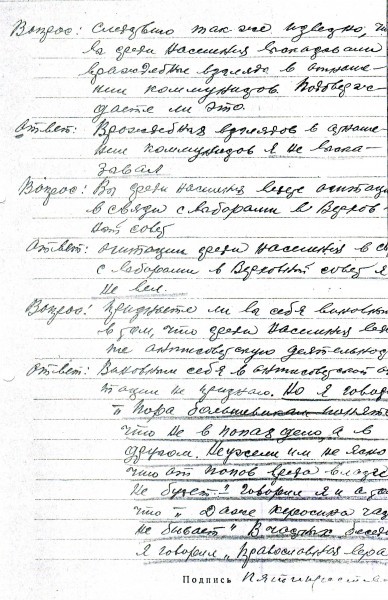 Вопрос: Следствию так же известно, что
вы среди населения высказывали
враждебные взгляды в отноше-
нии коммунизов. Подтверж-
даете ли это.
Ответ: Враждебных взглядов в отноше
нии коммунизов я не выска-
зывал
Вопрос: Вы среди населения вели агитац
в связи с выборами в Верхов-
ный совет
Ответ: агитации среди населения в с
с выборами в Верховный совет я
не вел.
Вопрос: Признаете ли вы себя виновным
в том, что среди населения вели
антисоветскую деятельно
Ответ: Виновным себя в антисоветской а
тации не признаю. Но я говор
"Пора большевикам понять
что не в попах дело а в
другом. Неужели им не ясно
что от попов вреда власти
не будет." Говорил я и о том
что "Даже керосина
не бывает" В частных бесед
я говорил "Православная вера
Подпись